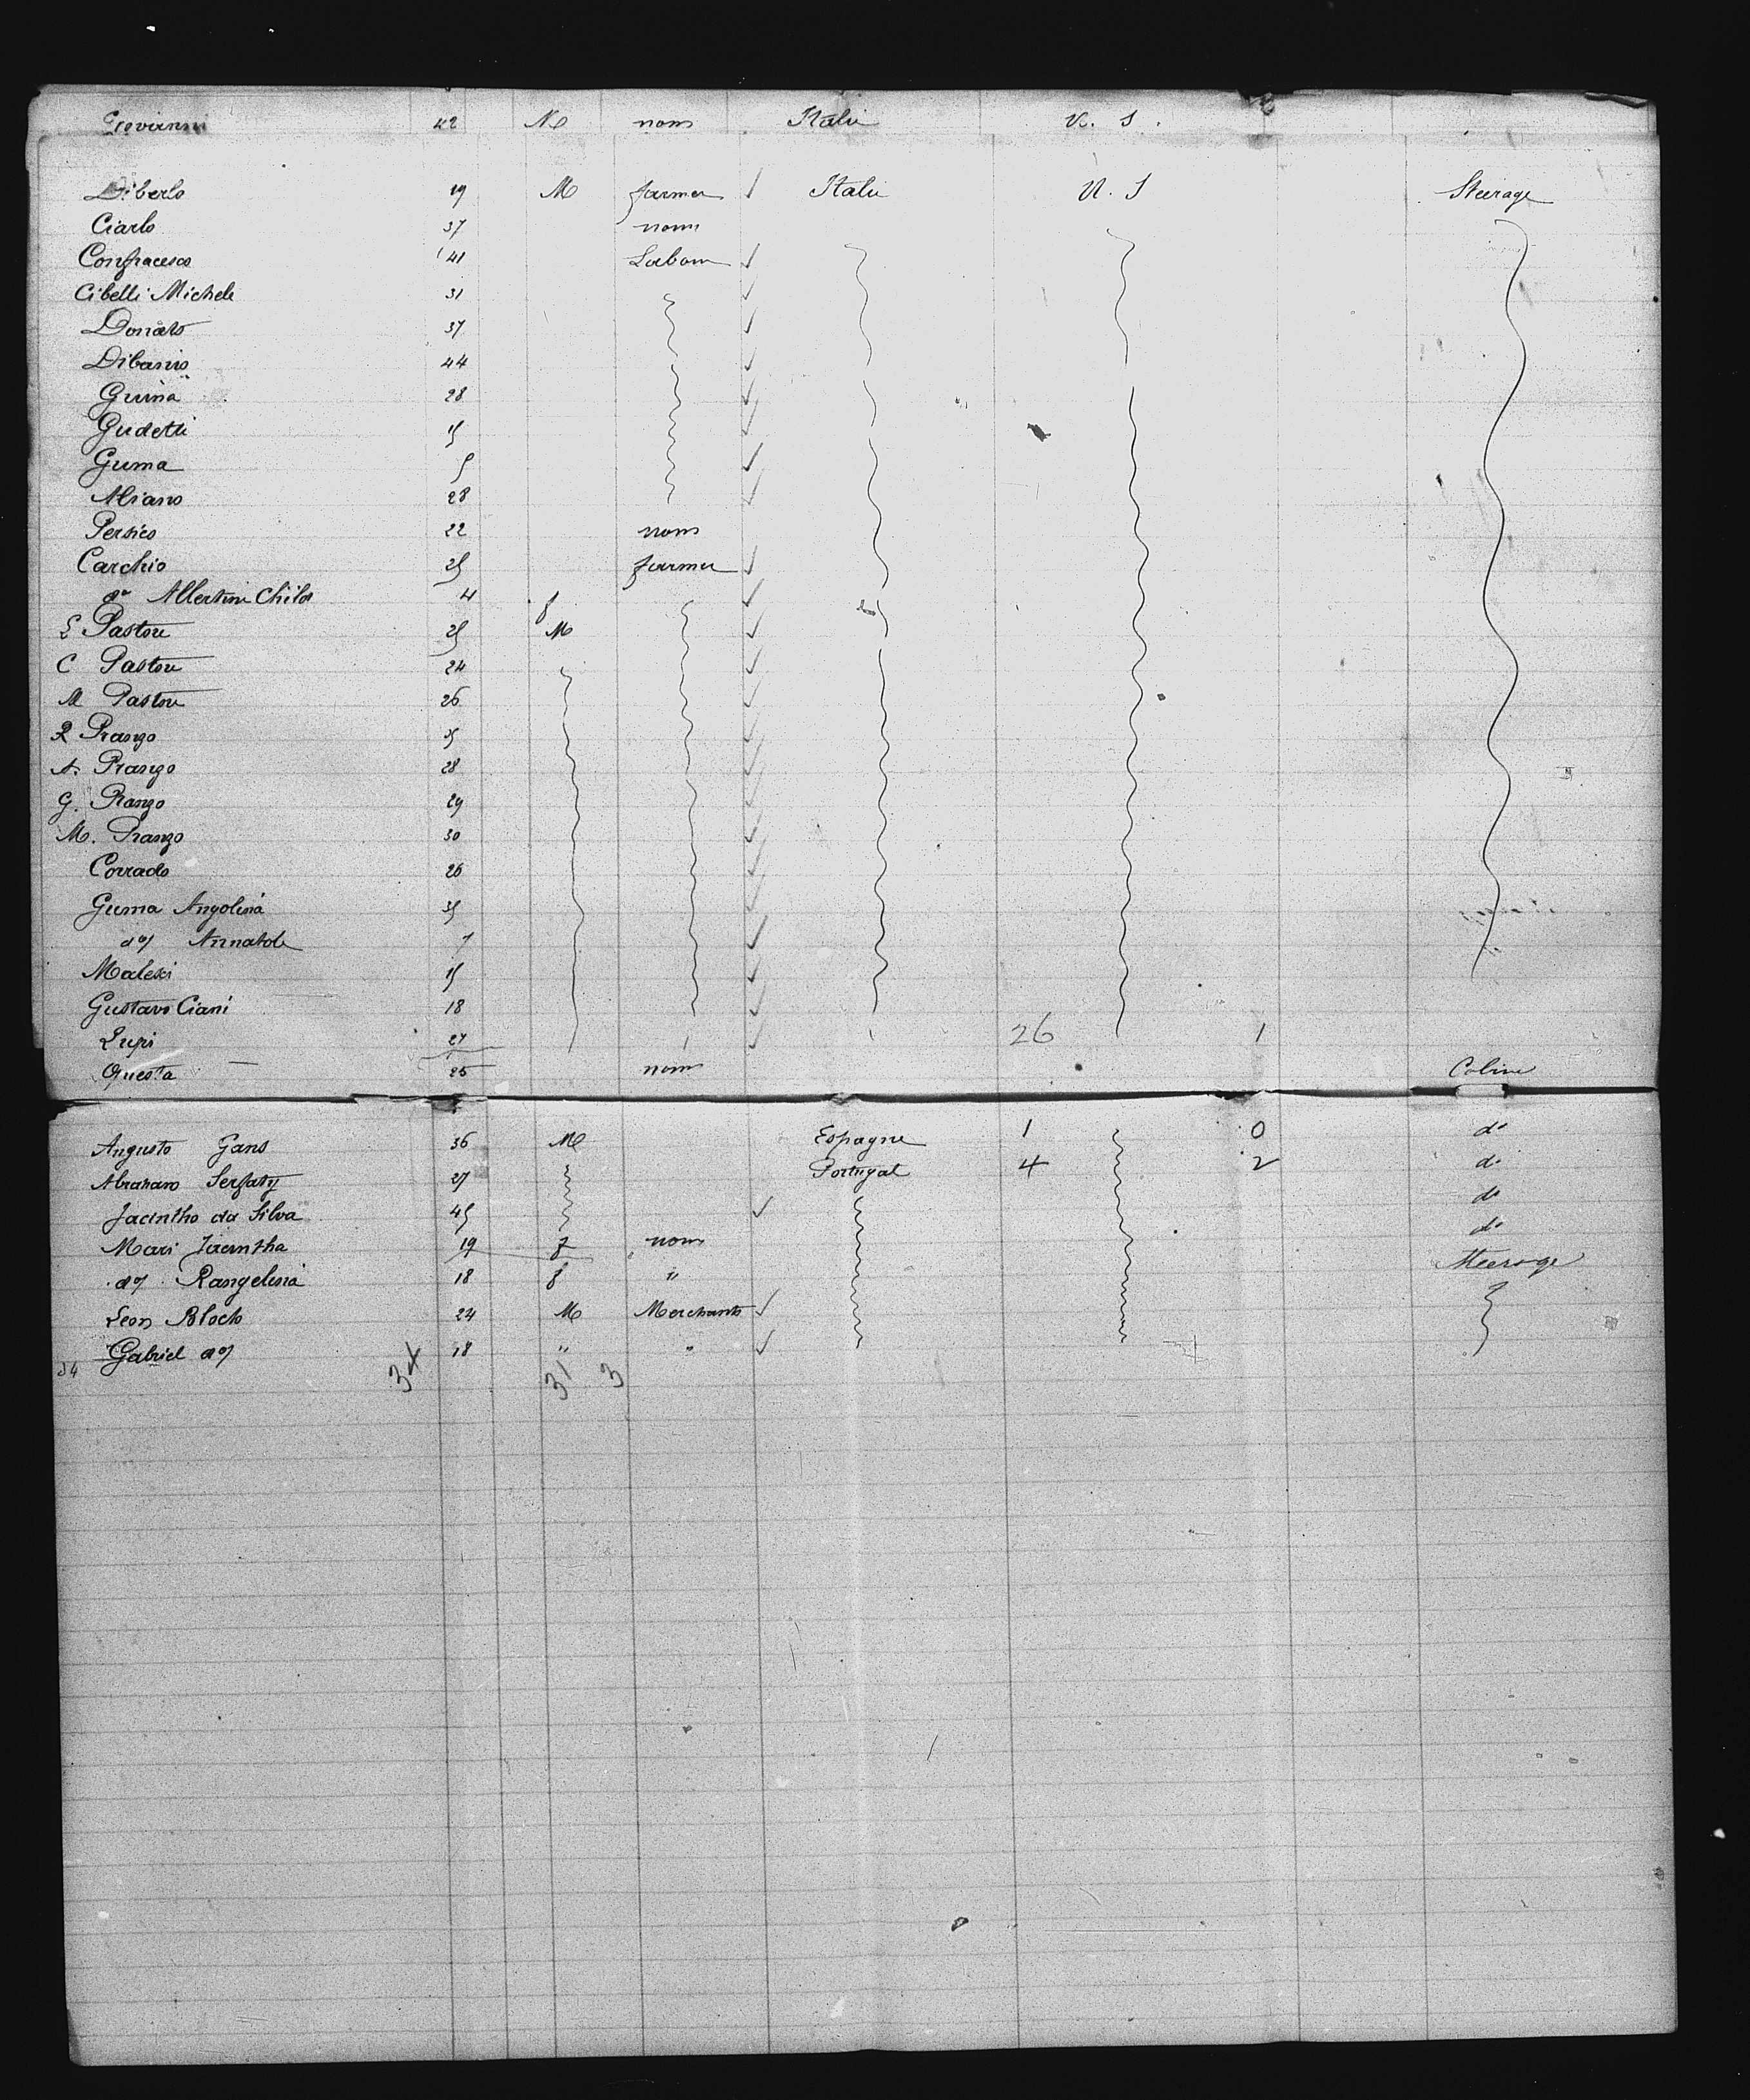 Giovanni 42 M nom Italie U. S.
Liberto 19 M farmer ✓ Italie U. S Steerage
Ciarlo 37 nom
Confracesco 41 Labour ✓
Cibelli Michele 31 ✓
Donato 37 ✓
Dibanio 44 ✓
Guma 28 ✓
Gudetti 15 ✓
Guma 5 ✓
Miano 28 ✓
Persico 22 nom
Carchio 25 farmer ✓
do Albertine Child 4 f ✓
E Pastore 25 M ✓
C Pastore 24 ✓
M Pastore 26 ✓
R Pranzo 35 ✓
A. Pranzo 28 ✓
G. Pranzo 29 ✓
M. Pranzo 30 ✓
Corrado 26 ✓
Guma Angolina 35 ✓
do Annatole 7 ✓
Malesci 15 ✓
Gustavo Ciani 18 ✓
Lupi 27 ✓ 26 1
Questa 25 nom Cabine
Augusto Gans 36 M Espagne 1 0 do
Abraham Serfaty 27 Portugal 4 2 do
Jacintho da Silva 45 ✓ do
Mari Jacintha 19 f nom do
do Rangelina 18 f " Steerage
Leon Bloch 24 M Merchants ✓
Gabriel do 18 " " ✓
34 34 31 3